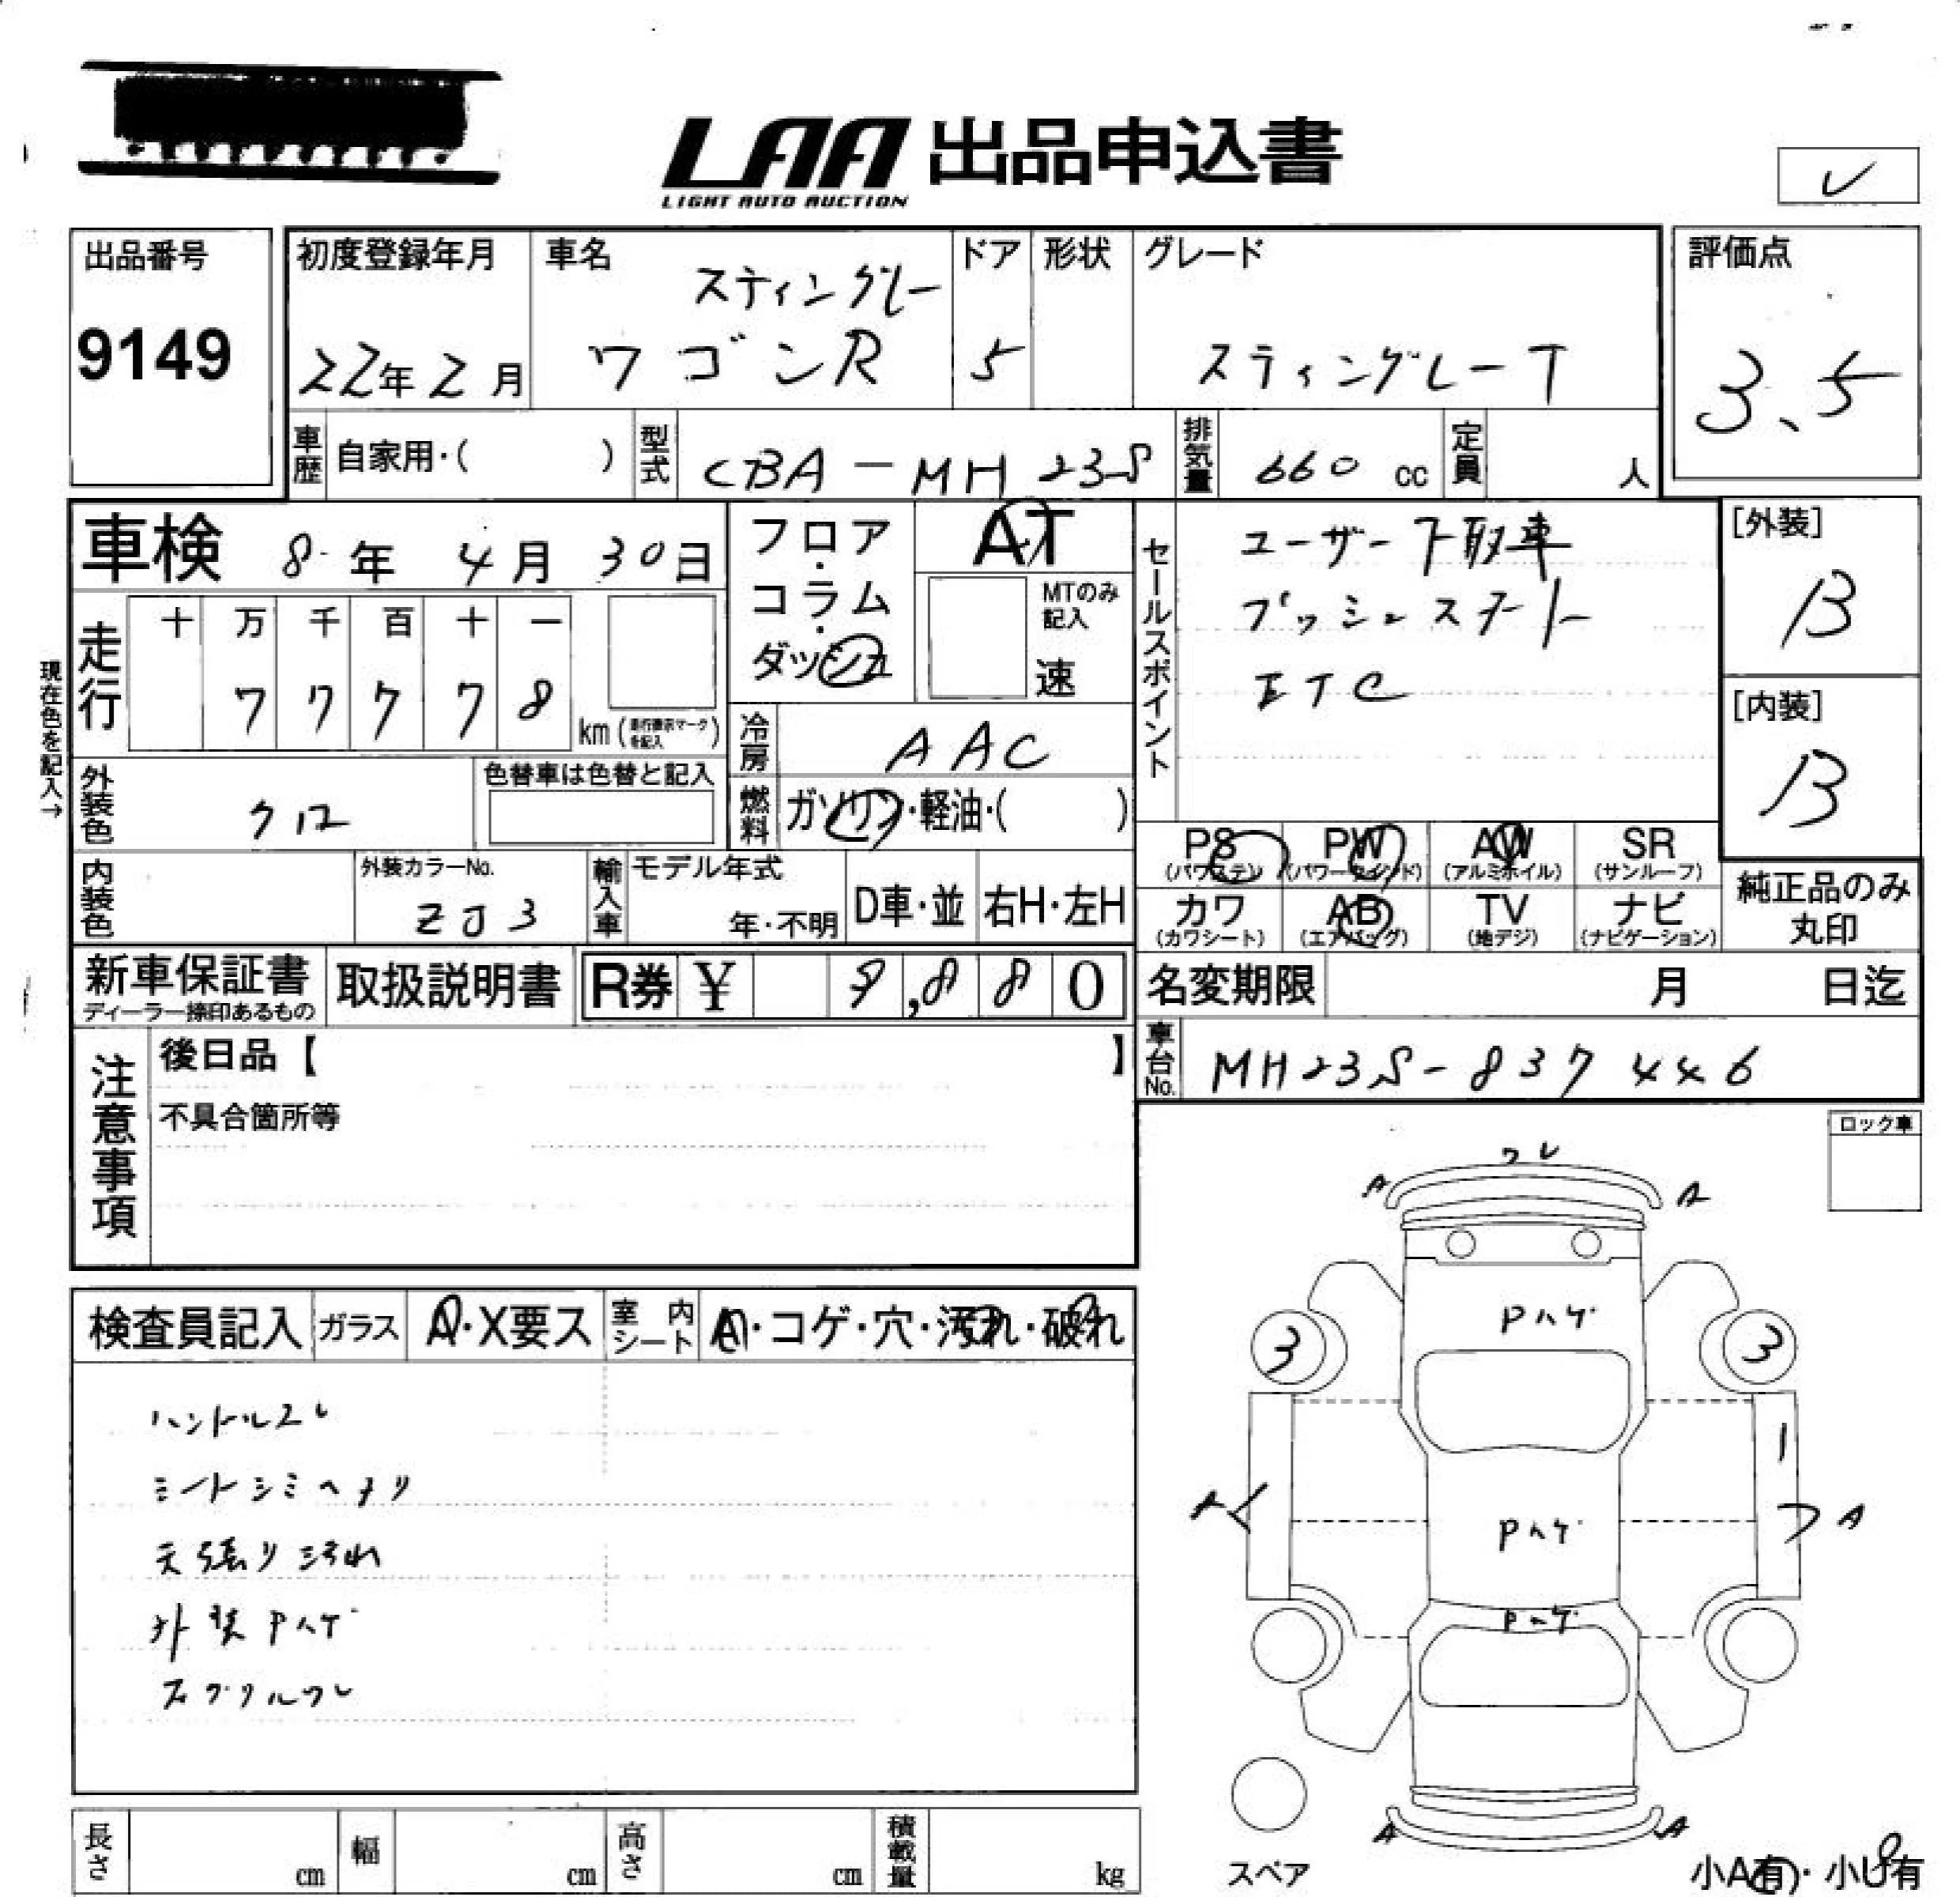 LAA 出品申込書
LIGHT AUTO AUCTION
レ
出品番号
9149
初度登録年月
22年2月
車名
スティングレー
ワゴンR
ドア
5
形状
グレード
スティングレーT
評価点
3.5
車歴 自家用・( )
型式 CBA-MH23S
排気量 660 cc
定員 人
車検 8年 4月 30日
現在色を記入→
走行
十 万 千 百 十 一
7 7 7 7 8
km
フロア・コラム・ダッシュ
AT
MTのみ記入
速
冷房 AAC
燃料 ガソリン・軽油・( )
外装色 クロ
色替車は色替と記入
内装色
外装カラーNo.
ZJ3
輸入車
モデル年式
年・不明
D車・並
右H・左H
セールスポイント
ユーザー下取車
プッシュスタート
ETC
[外装]
B
[内装]
B
PS (パワステ)
PW (パワーウインド)
AW (アルミホイル)
SR (サンルーフ)
カワ (カワシート)
AB (エアバッグ)
TV (地デジ)
ナビ (ナビゲーション)
純正品のみ
丸印
新車保証書
ディーラー捺印あるもの
取扱説明書
R券 ¥ 9,880
名変期限 月 日迄
車台No. MH23S-837446
注意事項
後日品【 】
不具合箇所等
ロック車
検査員記入
ガラス A・X要ス
室内シート A・コゲ・穴・汚れ・破れ
ハンドルスレ
シートシミヘタリ
天張り汚れ
外装Pハゲ
ワレ
A A
Pハゲ
3 3
A A
Pハゲ
Pハゲ
A A
スペア
小A有・小U有
長さ cm
幅 cm
高さ cm
積載量 kg